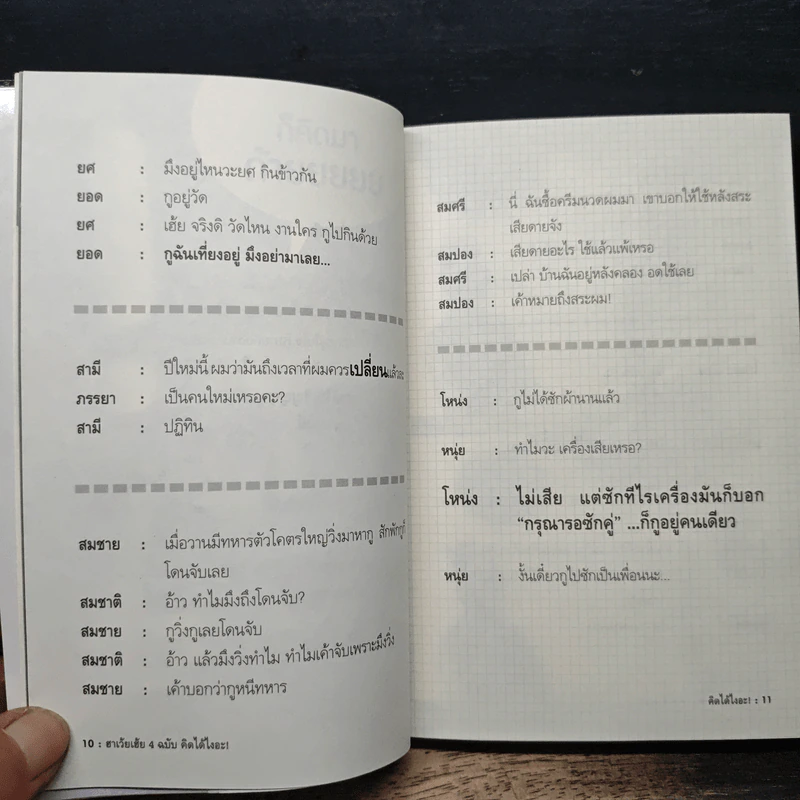 ยศ : มึงอยู่ไหนวะยศ กินข้าวกัน
ยอด : กูอยู่วัด
ยศ : เฮ้ย จริงดิ วัดไหน งานใคร กูไปกินด้วย
ยอด : กูฉันเที่ยงอยู่ มึงอย่ามาเลย...
สามี : ปีใหม่นี้ ผมว่ามันถึงเวลาที่ผมควรเปลี่ยนแล้วละ
ภรรยา : เป็นคนใหม่เหรอคะ?
สามี : ปฏิทิน
สมชาย : เมื่อวานมีทหารตัวโคตรใหญ่วิ่งมาหากู สักพักกูก็
โดนจับเลย
สมชาติ : อ้าว ทำไมมึงถึงโดนจับ?
สมชาย : กูวิ่งกูเลยโดนจับ
สมชาติ : อ้าว แล้วมึงวิ่งทำไม ทำไมเค้าจับเพราะมึงวิ่ง
สมชาย : เค้าบอกว่ากูหนีทหาร
10 : ฮาเว้ยเฮ้ย 4 ฉบับ คิดได้ไงอะ!
สมศรี : นี่ ฉันซื้อครีมนวดผมมา เขาบอกให้ใช้หลังสระ
เสียดายจัง
สมปอง : เสียดายอะไร ใช้แล้วแพ้เหรอ
สมศรี : เปล่า บ้านฉันอยู่หลังคลอง อดใช้เลย
สมปอง : เค้าหมายถึงสระผม!
โหน่ง : กูไม่ได้ซักผ้านานแล้ว
หนุ่ย : ทำไมวะ เครื่องเสียเหรอ?
โหน่ง : ไม่เสีย แต่ซักทีไรเครื่องมันก็บอก
“กรุณารอซักคู่” ...ก็กูอยู่คนเดียว
หนุ่ย : งั้นเดี๋ยวกูไปซักเป็นเพื่อนนะ...
คิดได้ไงอะ! : 11